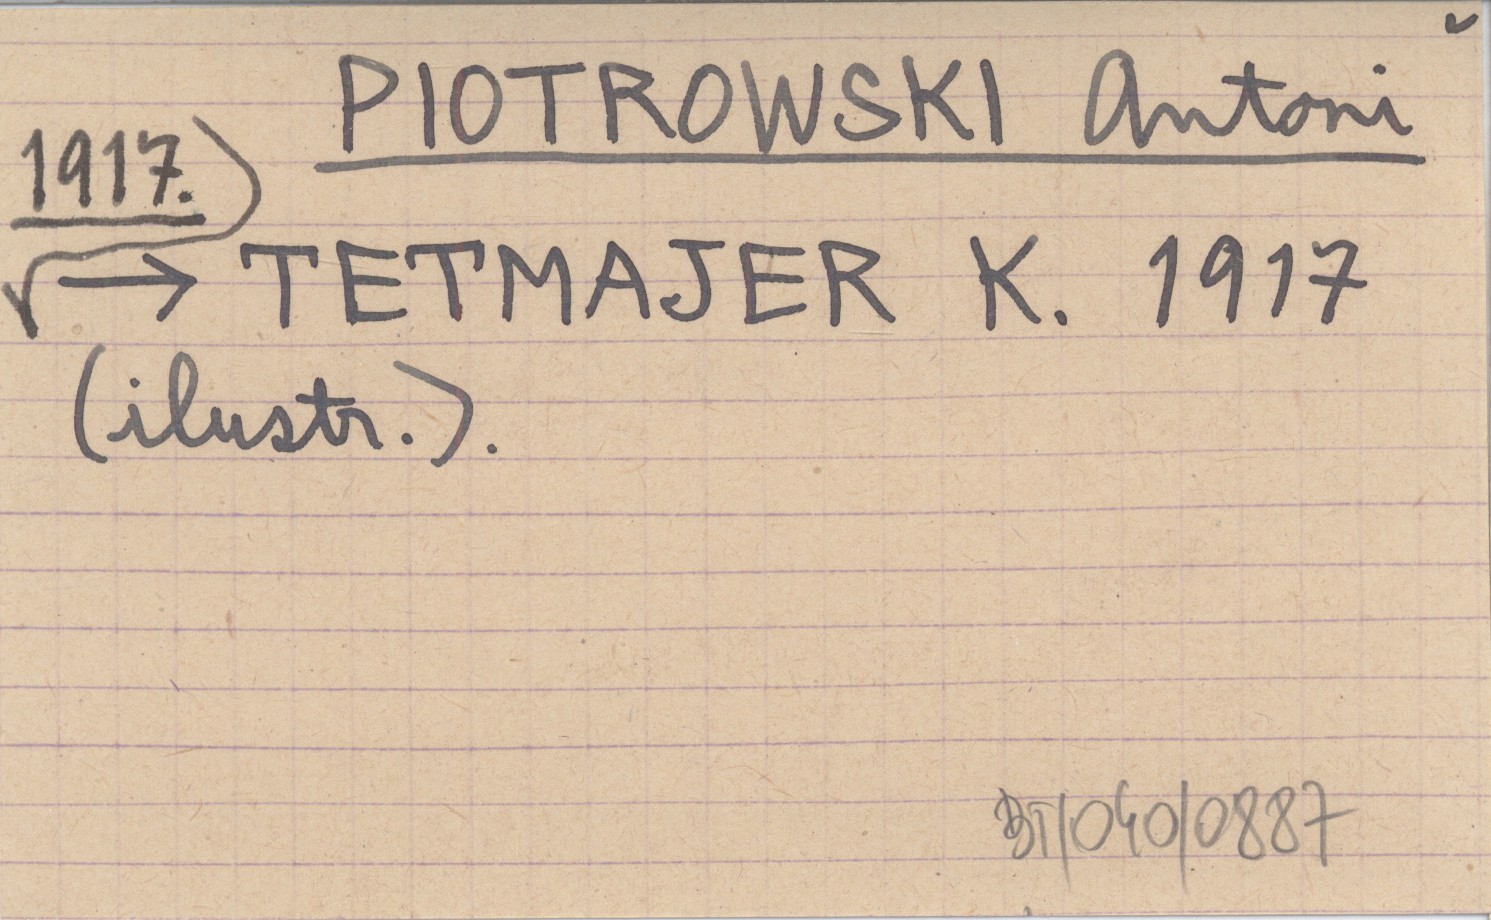 PIOTROWSKI Antoni
1917.
→ TETMAJER K. 1917
(ilustr.).
BT/040/0887